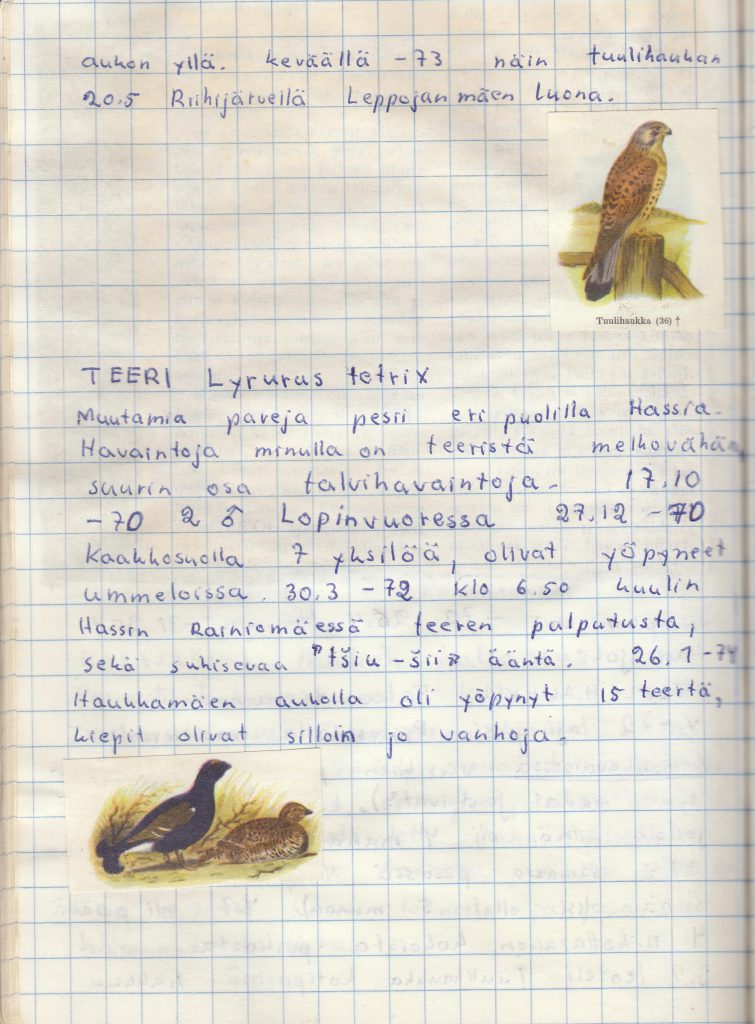 aukon yllä. keväällä -73 näin tuulihaukan
20.5 Riihijärvellä Leppojanmäen luona.
Tuulihaukka (36) †
TEERI Lyrurus tetrix
Muutamia pareja pesii eri puolilla Hassia.
Havaintoja minulla on teeristä melko vähän,
suurin osa talvihavaintoja. 17.10
-70 2 ♂ Lopinvuoressa 27.12 -70
Kaakkosuolla 7 yksilöä, olivat yöpyneet
ummeloissa. 30.3 -72 klo 6.50 kuulin
Hassin Rainiomäessä teeren pulputusta,
sekä suhisevaa "tšiu-šii" ääntä. 26.1 -74
Haukkamäen aukolla oli yöpynyt 15 teertä,
kiepit olivat silloin jo vanhoja.